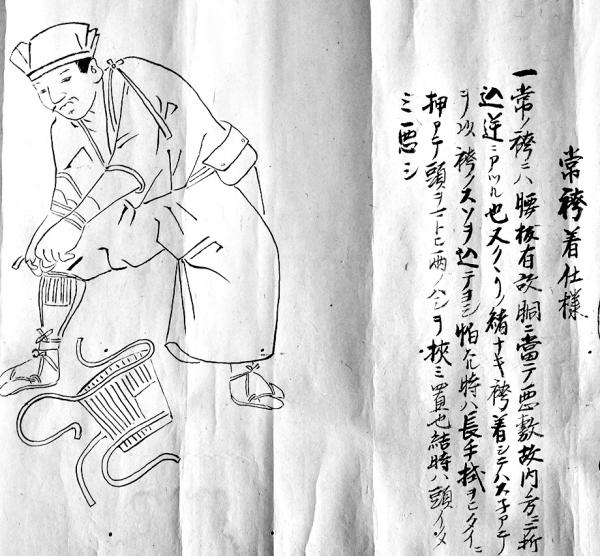 常袴着仕様
一常ノ袴ニハ腰板有故胴ニ當テ悪敷故内ノ方ニ折
込逆ニアツル也又クヽリノ緒ナキ袴着シテハスネアテ
ヲ以袴ノスソヲ込テヨシ 時ハ長手拭ヲヒタイニ
押アテ頭ヲマトヒ両ノハシヲ挾ミ置也結時ハ頭イタ
ミ悪シ